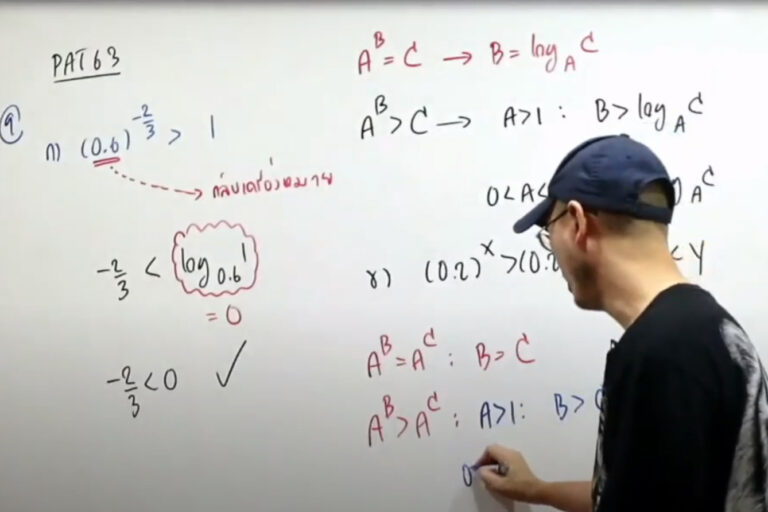 PAT 63
9
ก) (0.6)^{-2/3} > 1
กลับเครื่องหมาย
-2/3 < log_{0.6} 1
= 0
-2/3 < 0 ✓
A^B = C → B = log_A C
A^B > C → A > 1 : B > log_A C
0 < A < A C
ข) (0.2)^x > (0.2 < Y
A^B = A^C : B = C
A^B > A^C : A > 1 : B >
0